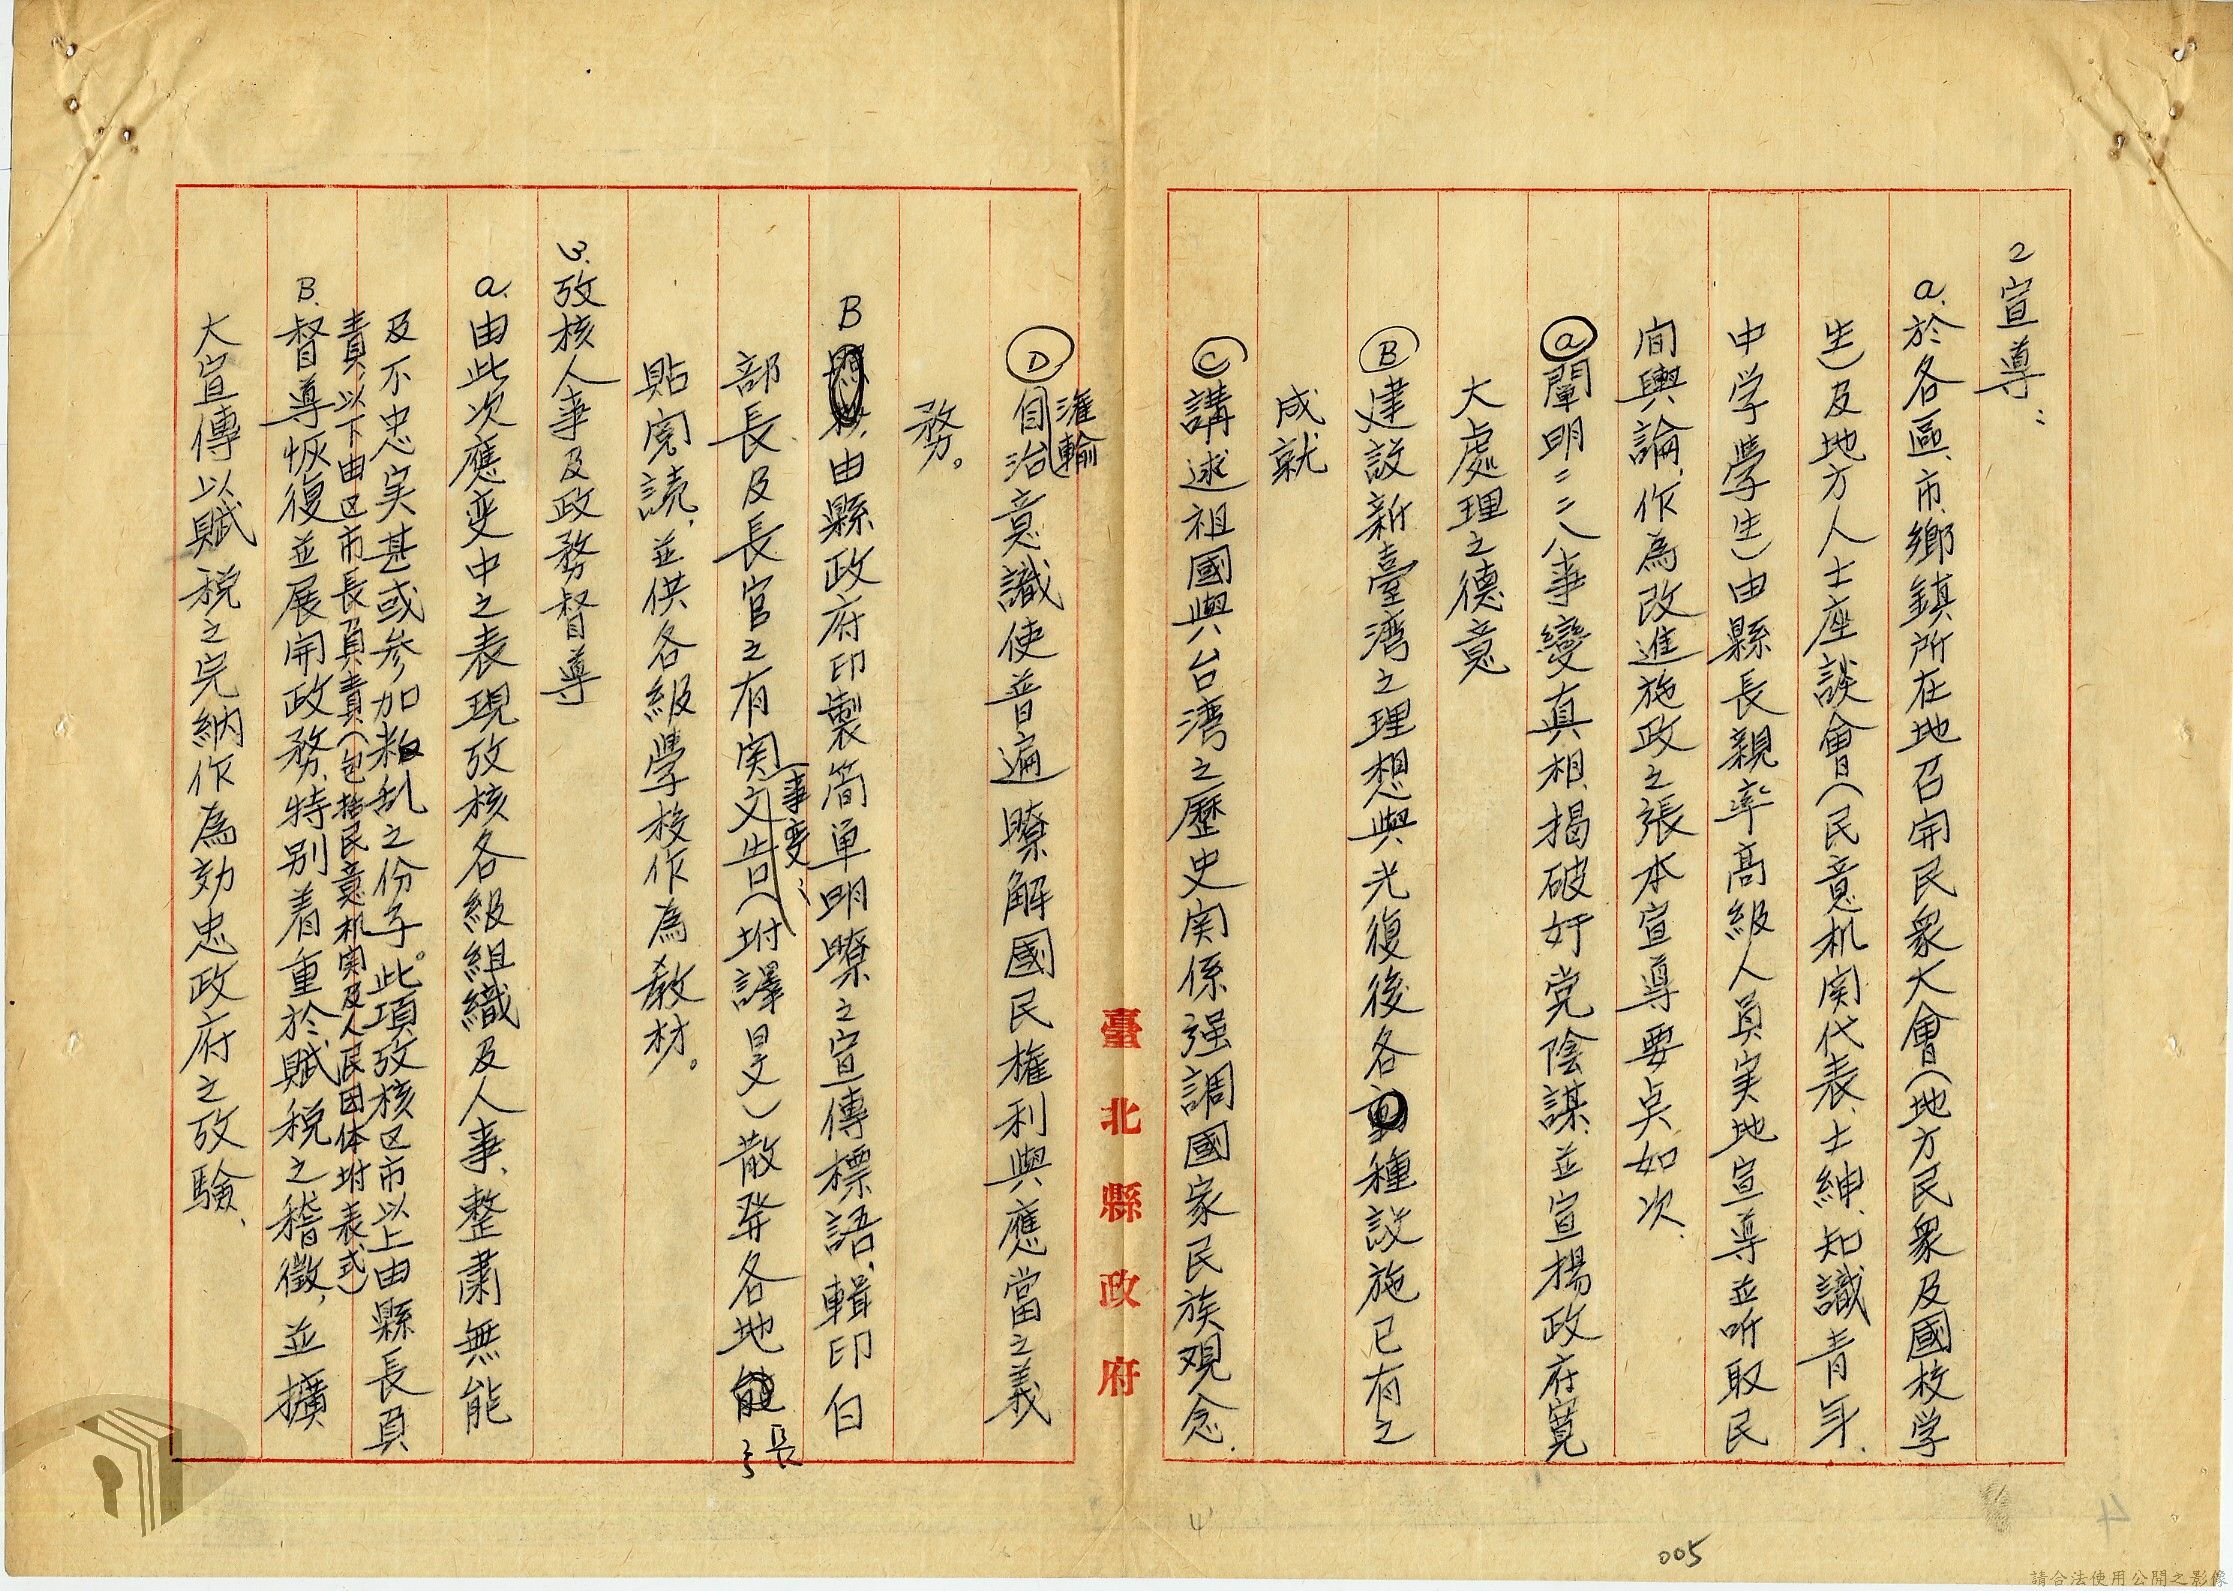 2 宣導：
a.於各區、市、鄉鎮所在地召開民衆大會（地方民衆及國校学
生）及地方人士座談會（民意机関代表、士紳、知識青年、
中学學生）由縣長親率高級人員実地宣導並听取民
間輿論，作為改進施政之張本宣導要点如次、
ⓐ闡明二二八事變真相、揭破奸党陰謀、並宣揚政府寬
大處理之德意
Ⓑ建設新臺湾之理想與光復後各種設施已有之
成就
Ⓒ講述祖國與台湾之歷史関係强調國家民族观念、
臺北縣政府
Ⓓ灌輸自治意識使普遍瞭解國民權利與應當之義
務。
B 由縣政府印製简单明瞭之宣傳標語，輯印白
部長、及長官之有関事变文告（坿譯旻）散발各地張
貼閱読，並供各級學校作為教材。
3.攷核人事及政務督導
a.由此次應变中之表現攷核各級組織及人事、整肅無能
及不忠実甚或参加叛乱之份子。此項攷核区市以上由縣長負
責、以下由区市長負責（包括民意机関及人民団体坿表式）
B.督導恢復並展開政務、特别着重於賦税之稽徵，並擴
大宣傳以賦税之完納作為効忠政府之攷驗、
4
005
請合法使用公開之影像